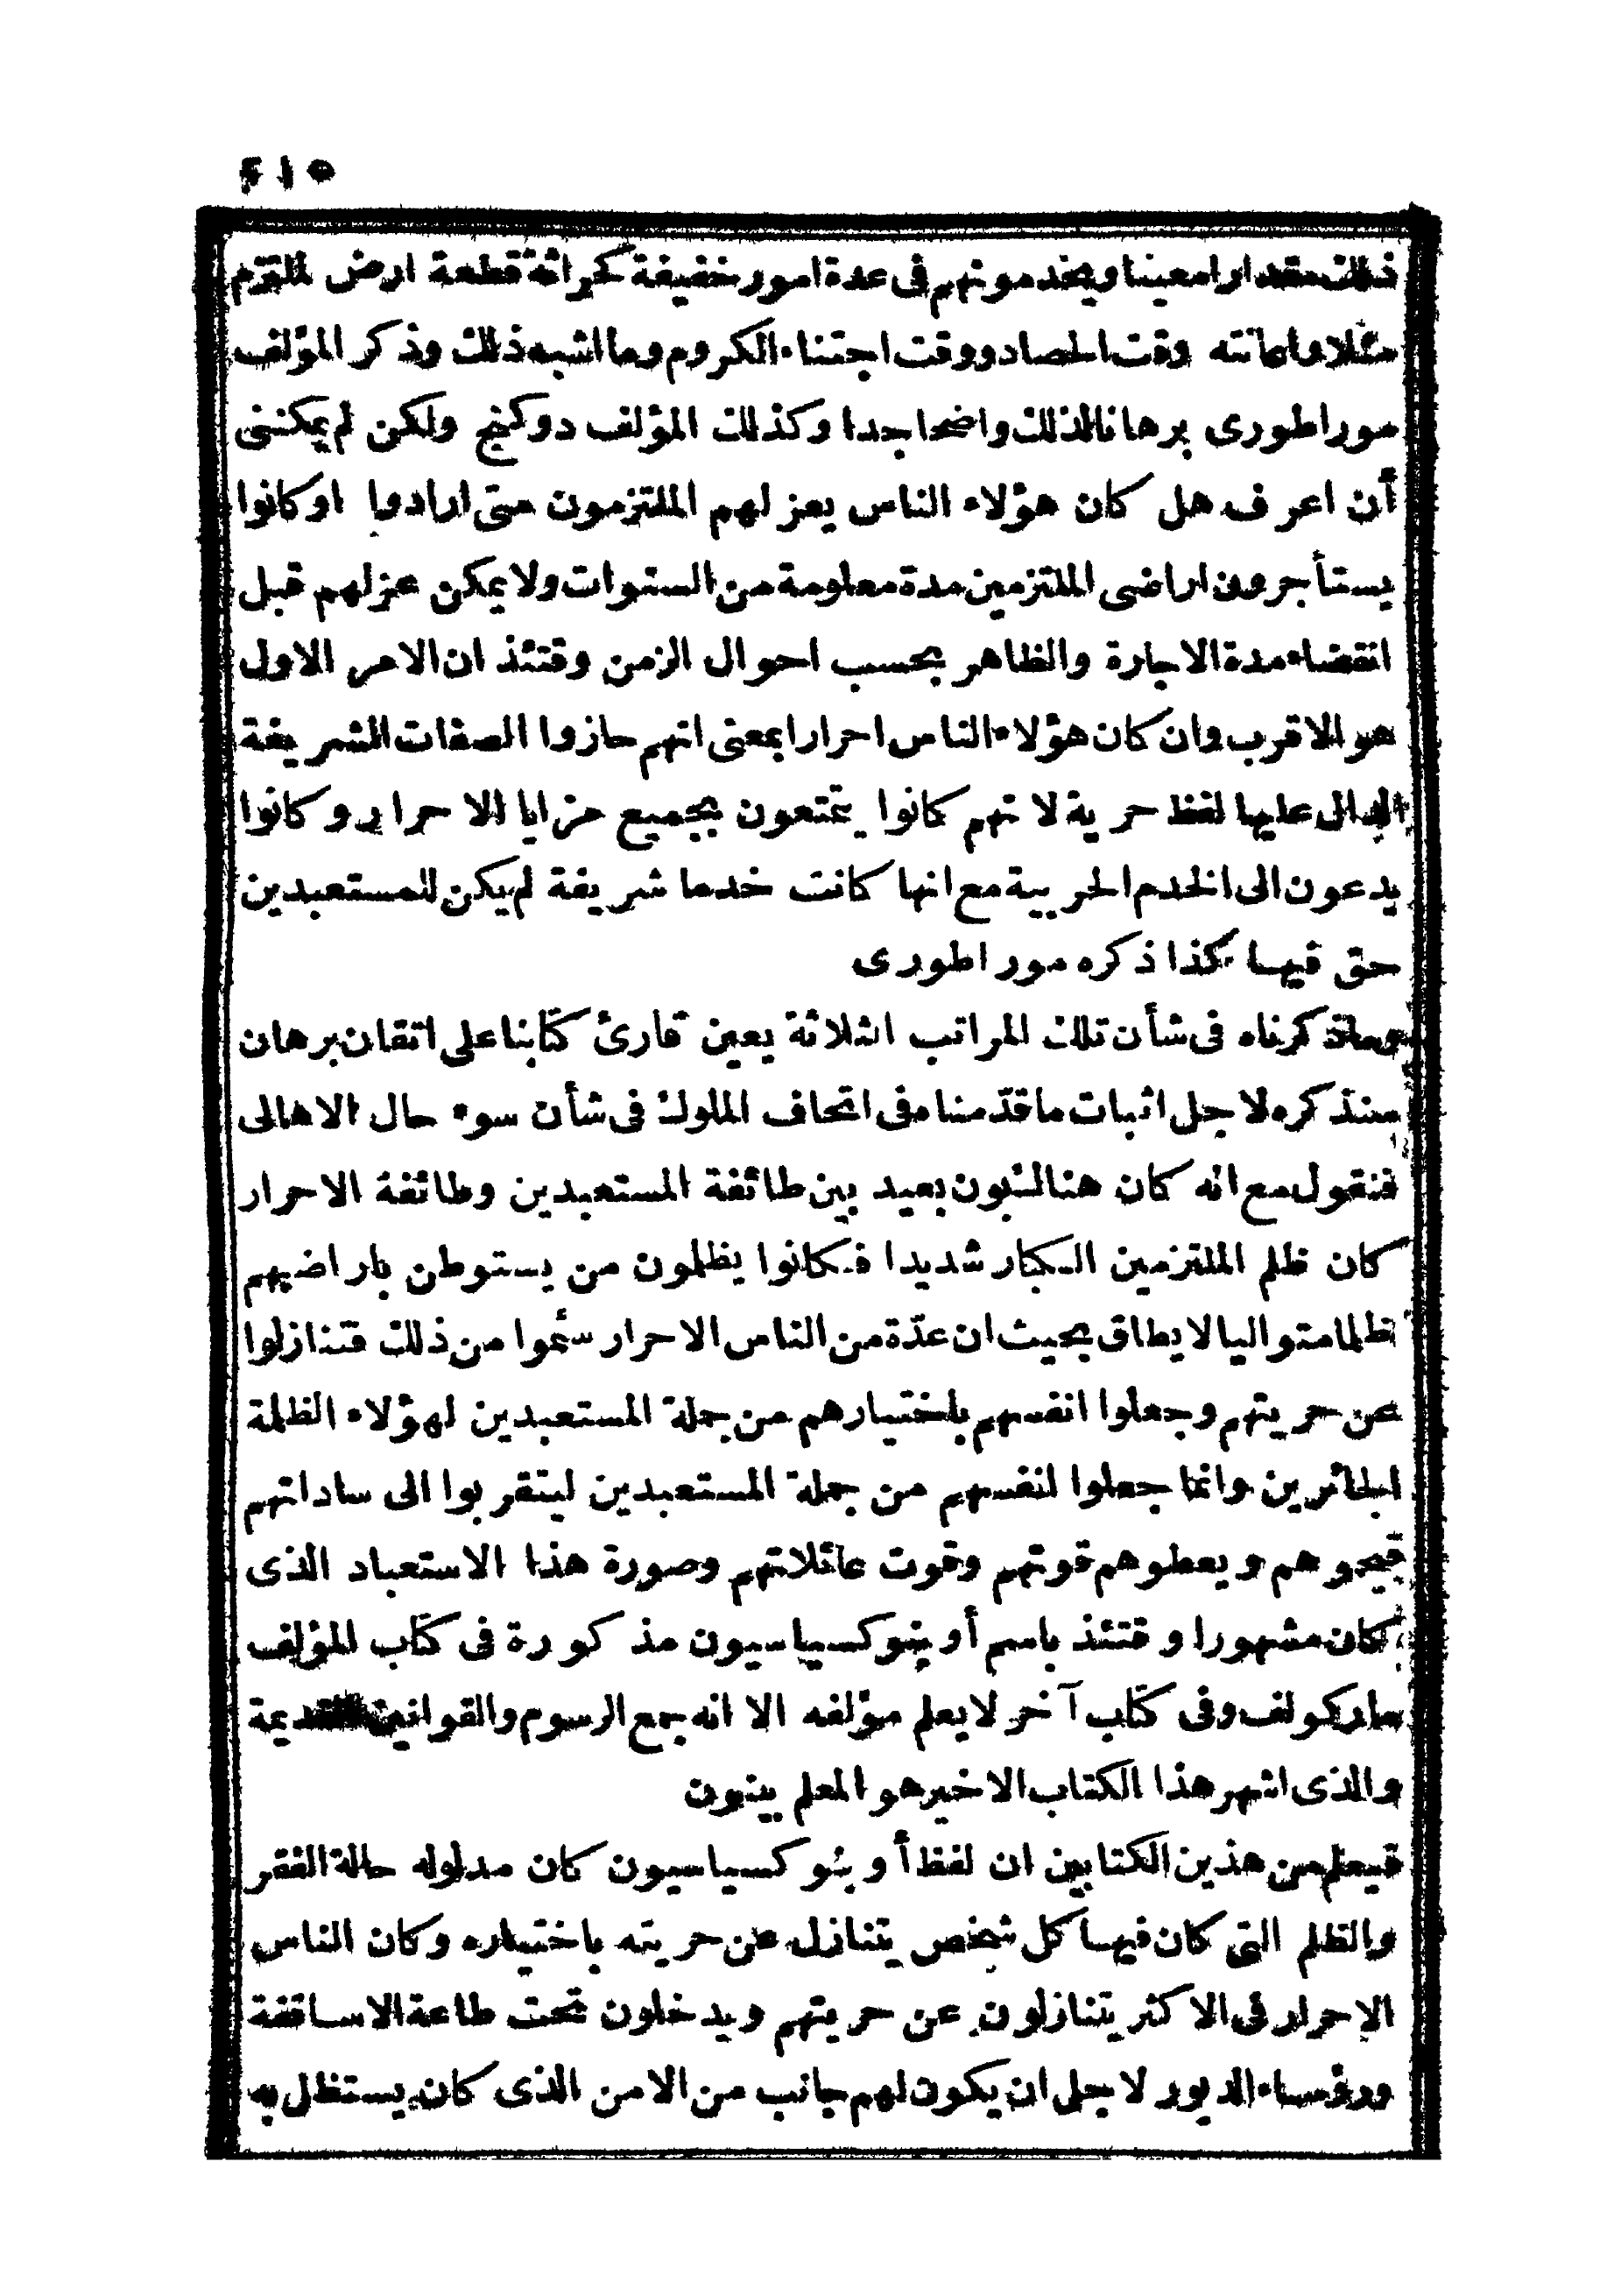 ٢١٥
ذلك مقدارا معينا ويخدمونهم فى عدة امور خفيفة كحراثة قطعة ارض للملتزم
مثلا واعانته وقت الحصاد ووقت اجتناء الكروم وما اشبه ذلك وذكر المؤلف
موراطورى برهانا لذلك واضحا جدا وكذلك المؤلف دوكنج ولكن لم يمكننى
أن اعرف هل كان هؤلاء الناس يعزلهم الملتزمون متى ارادوا اوكانوا
يستأجرون اراضى الملتزمين مدة معلومة من السنوات ولا يمكن عزلهم قبل
انقضاء مدة الاجارة والظاهر بحسب احوال الزمن وقتئذ ان الامر الاول
هو الاقرب وان كان هؤلاء الناس احرارا بمعنى انهم حازوا الصفات الشريفة
الدال عليها لفظ حرية لانهم كانوا يتمتعون بجميع مزايا الاحرار وكانوا
يدعون الى الخدم الحربية مع انها كانت خدما شريفة لم يكن للمستعبدين
حق فيها كذا ذكره موراطورى
وماذكرناه فى شأن تلك المراتب الثلاثة يعين قارئ كتابنا على اتقان برهان
سنذكره لاجل اثبات ما قدّمناه فى اتحاف الملوك فى شأن سوء حال الاهالى
فنقول مع انه كان هنالك بون بعيد بين طائفة المستعبدين وطائفة الاحرار
كان ظلم الملتزمين الكبار شديدا فكانوا يظلمون من يستوطن باراضيهم
ظلما متواليا لا يطاق بحيث ان عدّة من الناس الاحرار سئموا من ذلك فتنازلوا
عن حريتهم وجعلوا انفسهم باختيارهم من جملة المستعبدين لهؤلاء الظلمة
الجائرين وانما جعلوا لنفسهم من جملة المستعبدين ليتقربوا الى ساداتهم
فيحموهم ويعطوهم قوتهم وقوت عائلاتهم وصورة هذا الاستعباد الذى
كان مشهورا وقتئذ باسم أوبنوكسياسيون مذكورة فى كتاب المؤلف
ماركولف وفى كتاب آخر لا يعلم مؤلفه الا انه جمع الرسوم والقوانين القديمة
والذى اشهر هذا الكتاب الاخير هو المعلم بينون
فيعلم من هذين الكتابين ان لفظ أوبنوكسياسيون كان مدلوله حالة الفقر
والظلم التى كان فيها كل شخص يتنازل عن حريته باختياره وكان الناس
الاحرار فى الاكثر يتنازلون عن حريتهم ويدخلون تحت طاعة الاساقفة
ورؤساء الديور لاجل ان يكون لهم جانب من الامن الذى كان يستظل به